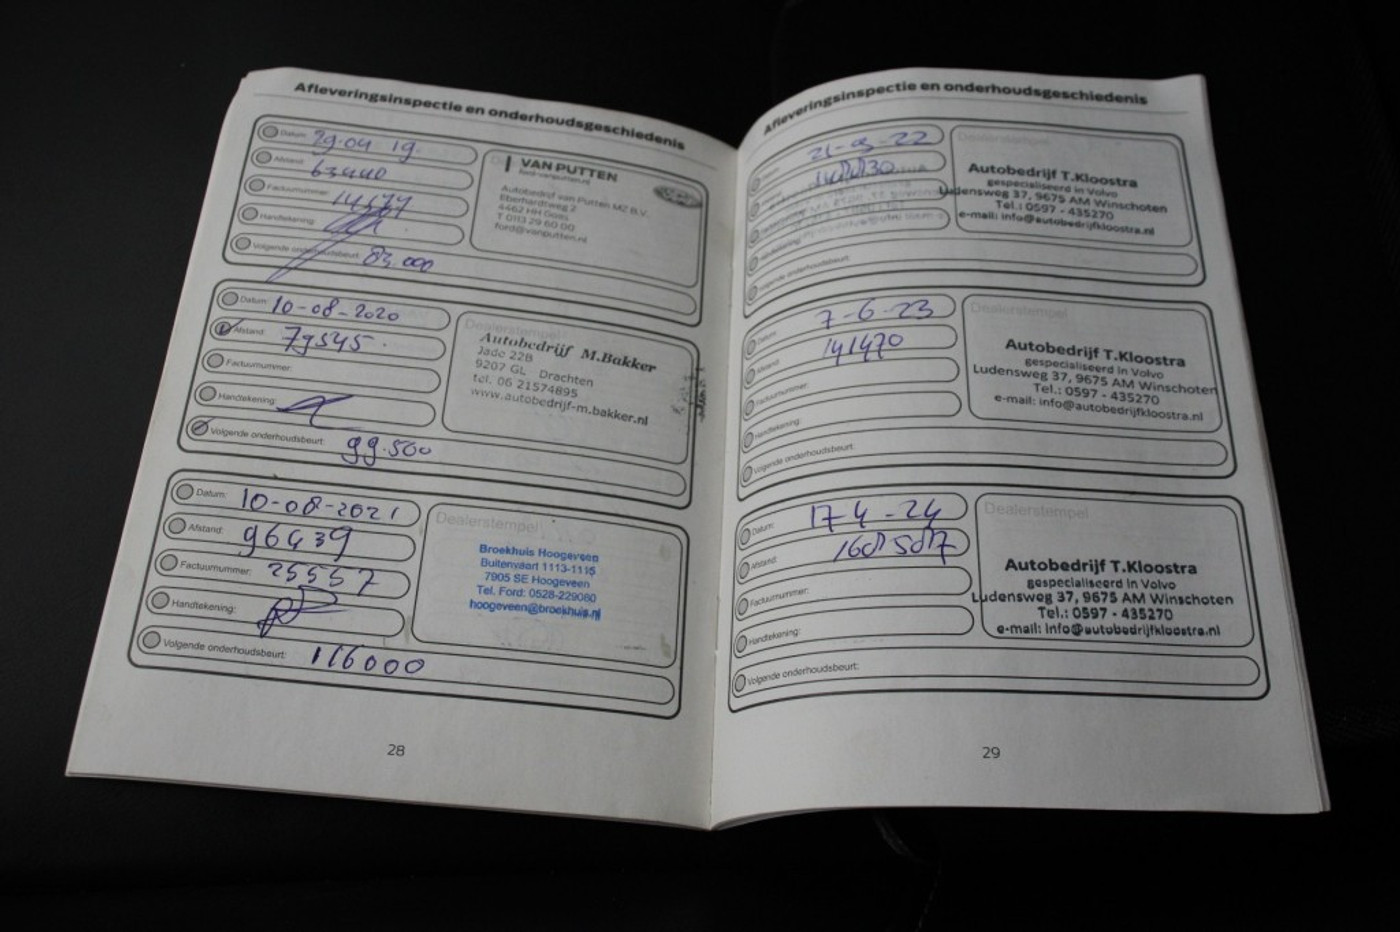 Afleveringsinspectie en onderhoudsgeschiedenis
Datum: 29-04 19
Afstand: 63440
Factuurnummer:
Handtekening:
Volgende onderhoudsbeurt: 83.000
VAN PUTTEN
ford-vanputten.nl
Autobedrijf van Putten MZ B.V.
Eberhardtweg 2
4462 HH Goes
T 0113 29 60 00
ford@vanputten.nl
Datum: 10-08-2020
Afstand: 79545
Factuurnummer:
Handtekening:
Volgende onderhoudsbeurt: 99.500
Dealerstempel
Autobedrijf M.Bakker
Jade 22B
9207 GL Drachten
tel. 06 21574895
www.autobedrijf-m.bakker.nl
Datum: 10-08-2021
Afstand: 96439
Factuurnummer: 25557
Handtekening:
Volgende onderhoudsbeurt: 116000
Dealerstempel
Broekhuis Hoogeveen
Buitenvaart 1113-1115
7905 SE Hoogeveen
Tel. Ford: 0528-229060
hoogeveen@broekhuis.nl
28
Afleveringsinspectie en onderhoudsgeschiedenis
21-03-22
Handtekening:
Volgende onderhoudsbeurt:
Dealerstempel
Autobedrijf T.Kloostra
gespecialiseerd in Volvo
Ludensweg 37, 9675 AM Winschoten
Tel.: 0597 - 435270
e-mail: info@autobedrijfkloostra.nl
Datum: 7-6-23
Afstand: 141470
Factuurnummer:
Handtekening:
Volgende onderhoudsbeurt:
Dealerstempel
Autobedrijf T.Kloostra
gespecialiseerd in Volvo
Ludensweg 37, 9675 AM Winschoten
Tel.: 0597 - 435270
e-mail: info@autobedrijfkloostra.nl
Datum: 17-4-24
Afstand:
Factuurnummer:
Handtekening:
Volgende onderhoudsbeurt:
Dealerstempel
Autobedrijf T.Kloostra
gespecialiseerd in Volvo
Ludensweg 37, 9675 AM Winschoten
Tel.: 0597 - 435270
e-mail: info@autobedrijfkloostra.nl
29